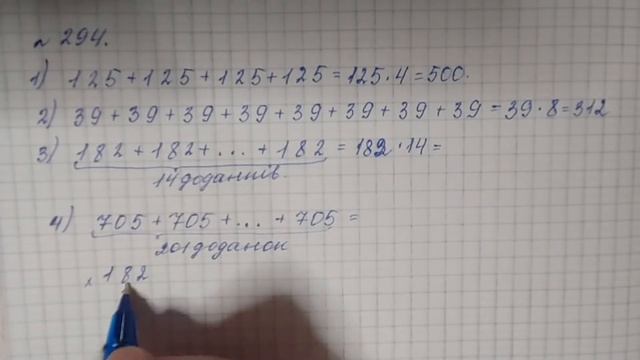 № 294.
1) 125+125+125+125=125·4=500.
2) 39+39+39+39+39+39+39+39=39·8=312
3) 182+182+...+182=182·14=
14 доданків.
4) 705+705+...+705=
201 доданок
× 182